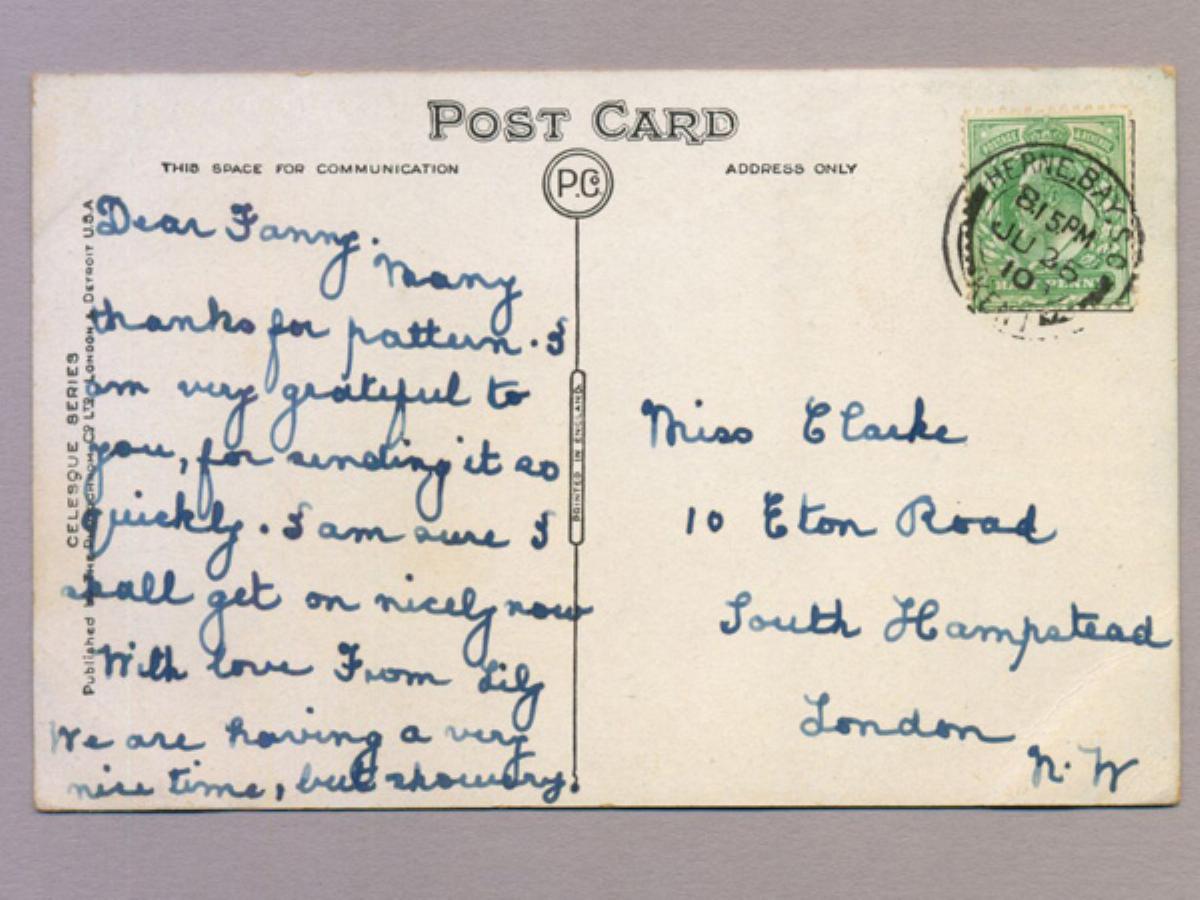 POST CARD
THIS SPACE FOR COMMUNICATION
ADDRESS ONLY
P.Co.
Dear Fanny.
Many
thanks for pattern. I
am very grateful to
you, for sending it so
quickly. I am sure I
shall get on nicely now
With love From Lily
We are having a very
nice time, but showery.
CELESQUE SERIES
Published by THE PHOTOCHROM CO. LTD. LONDON & DETROIT U.S.A
PRINTED IN ENGLAND
HERNE BAY. S.O
8.15PM
JU 26
10
KENT
HALFPENNY
Miss Clarke
10 Eton Road
South Hampstead
London
N. W